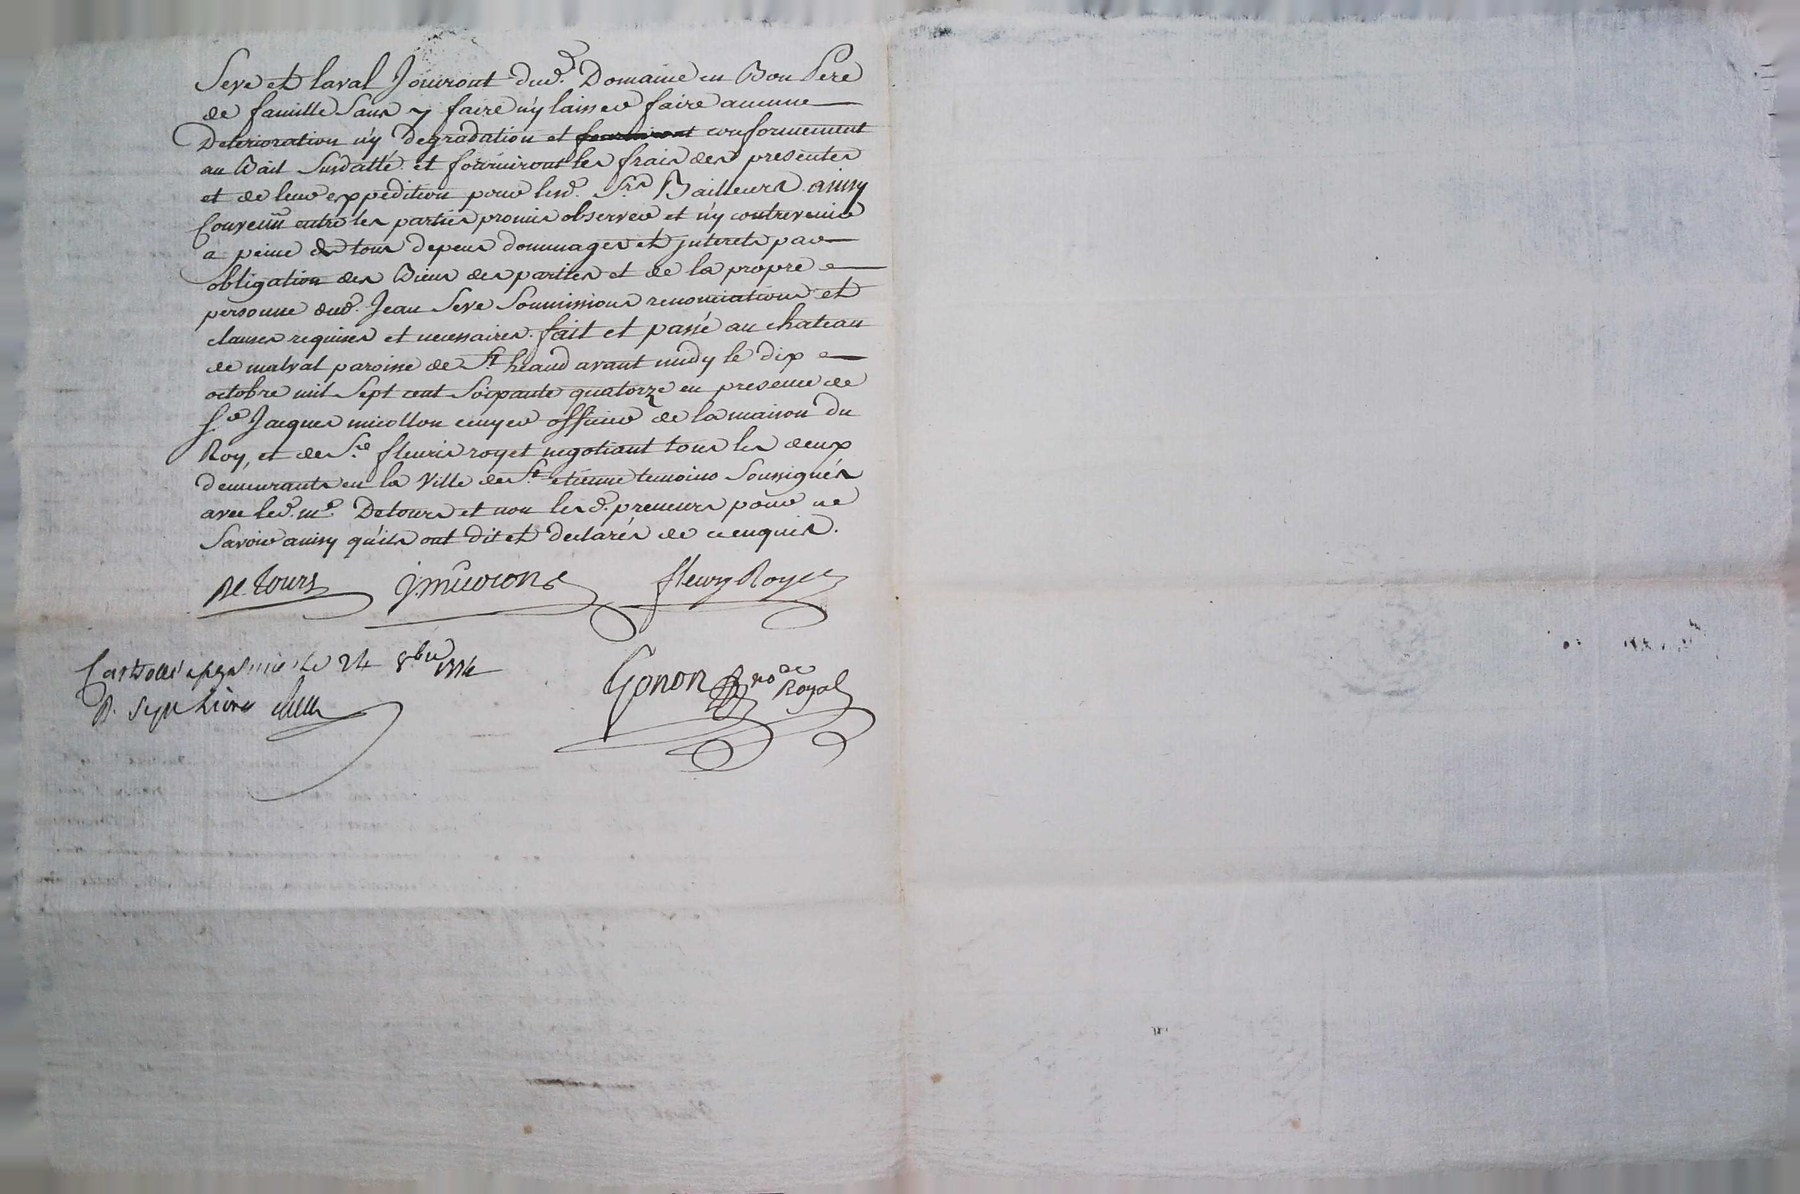 Seve et laval Jouiront dud.t Domaine en Bon Pere
de famille Sans y faire n'y laisser faire aucune
Deterioration n'y degradation et conformement
au Bail Susdatté et fourniront les frais des presentes
et de leur expedition pour lesd. Srs Bailleurs ainsy
Convenu entre les parties promis observer et n'y contrevenir
a peine de tous depens dommages et interets par
obligation des Biens des parties et de la propre
personne dud. Jean Seve Soumissions renonciations et
clauses requises et necessaires. fait et passé au chateau
de malval paroisse de St heand avant midy le dix
octobre mil Sept cent Soixante quatorze en presence de
Sr Jacques micollon ecuyer officier de la maison du
Roy, et de Sr fleuris royet negotiant tous les deux
demeurants en la Ville de St etienne temoins Soussignés
avec led. me. Detours et non lesd. preneurs pour ne
Savoir ainsy qu'ils ont dit et declarés de ce enquis.
De Tours fleury Royet
le 24 8bre 1774
R. Sept Livres
Gonon nore Royal